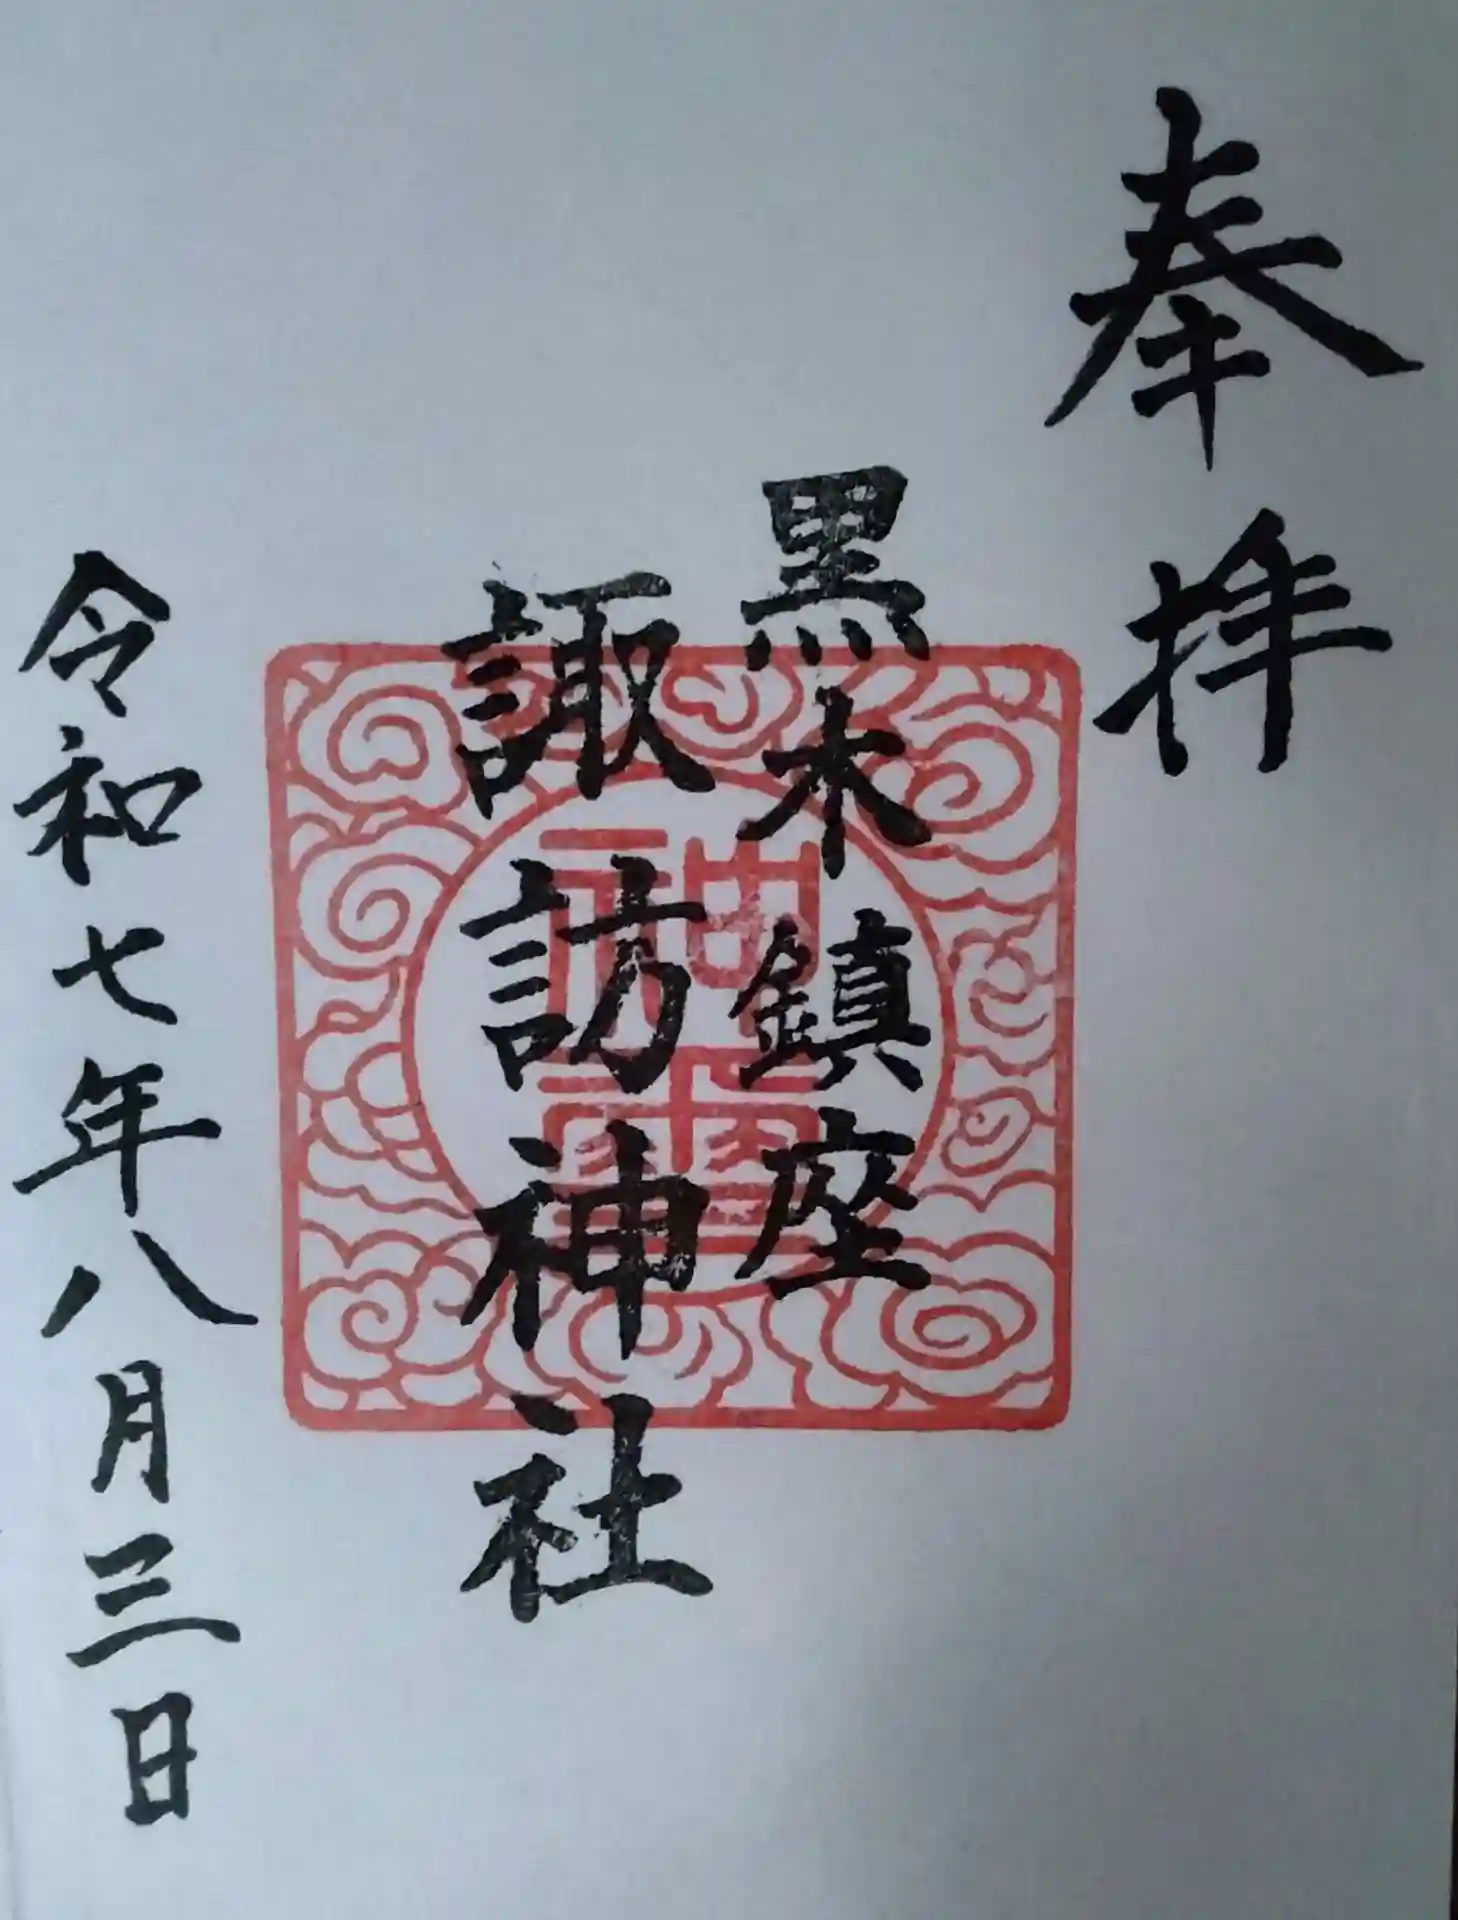 奉拝
黒木鎮座
諏訪神社
令和七年八月三日
神璽